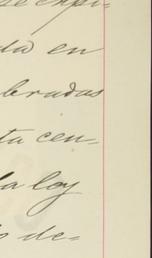 se expi-
da en
bradas
ta cen-
la ley
s de-